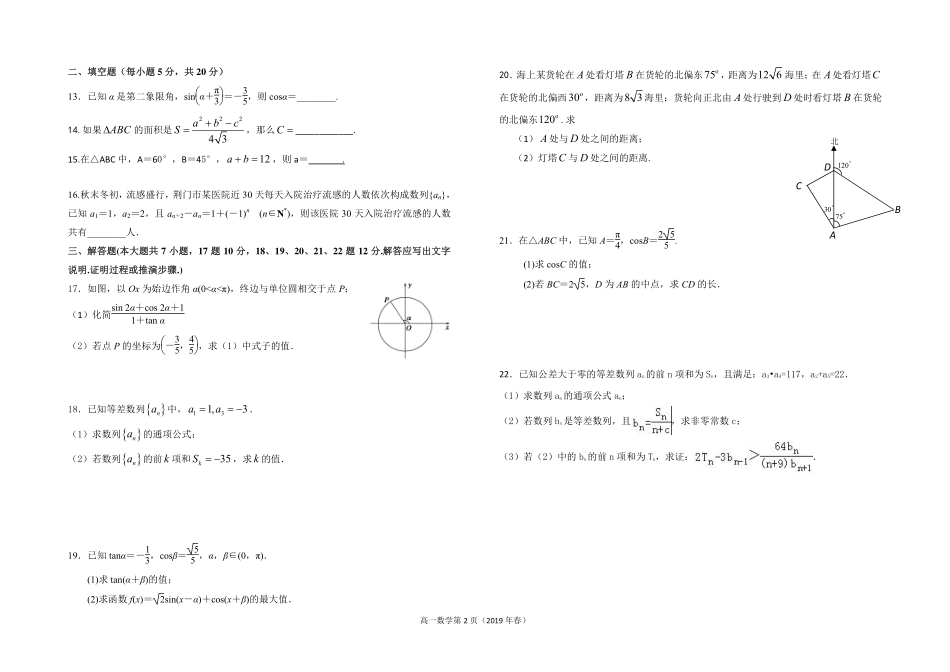 二、填空题（每小题 5 分，共 20 分）
13．已知 α 是第二象限角，sin(α＋π/3)＝－3/5，则 cosα＝________.
14. 如果 ΔABC 的面积是 S = (a²+b²−c²)/(4√3)，那么 C = ____________.
15.在△ABC 中，A＝60°，B＝45°，a+b=12，则 a＝_______.
16.秋末冬初，流感盛行，荆门市某医院近 30 天每天入院治疗流感的人数依次构成数列{aₙ}，
已知 a₁＝1，a₂＝2，且 aₙ₊₂－aₙ＝1＋(－1)ⁿ (n∈N*)，则该医院 30 天入院治疗流感的人数
共有________人.
三、解答题(本大题共 7 小题，17 题 10 分，18、19、20、21、22 题 12 分.解答应写出文字
说明.证明过程或推演步骤.)
17．如图，以 Ox 为始边作角 α(0<α<π)，终边与单位圆相交于点 P；
（1）化简(sin 2α＋cos 2α＋1)/(1＋tan α)
（2）若点 P 的坐标为(－3/5，4/5)，求（1）中式子的值．
y
P
α
O
x
18．已知等差数列{aₙ}中，a₁=1,a₃=−3．
（1）求数列{aₙ}的通项公式；
（2）若数列{aₙ}的前 k 项和 Sₖ=−35，求 k 的值．
19．已知 tanα＝－1/3，cosβ＝√5/5，α，β∈(0，π)．
(1)求 tan(α＋β)的值；
(2)求函数 f(x)＝√2sin(x－α)＋cos(x＋β)的最大值．
20．海上某货轮在 A 处看灯塔 B 在货轮的北偏东 75°，距离为 12√6 海里；在 A 处看灯塔 C
在货轮的北偏西 30°，距离为 8√3 海里；货轮向正北由 A 处行驶到 D 处时看灯塔 B 在货轮
的北偏东 120°．求
（1）A 处与 D 处之间的距离；
（2）灯塔 C 与 D 处之间的距离.
北
D
120°
C
30°
75°
B
A
21．在△ABC 中，已知 A＝π/4，cosB＝2√5/5.
(1)求 cosC 的值；
(2)若 BC＝2√5，D 为 AB 的中点，求 CD 的长．
22．已知公差大于零的等差数列 aₙ 的前 n 项和为 Sₙ，且满足：a₃•a₄=117，a₂+a₅=22．
（1）求数列 aₙ 的通项公式 aₙ；
（2）若数列 bₙ 是等差数列，且 bₙ=Sₙ/(n+c)，求非零常数 c；
（3）若（2）中的 bₙ 的前 n 项和为 Tₙ，求证：2Tₙ−3bₙ₋₁>64bₙ/((n+9)bₙ₊₁)．
高一数学第 2 页（2019 年春）